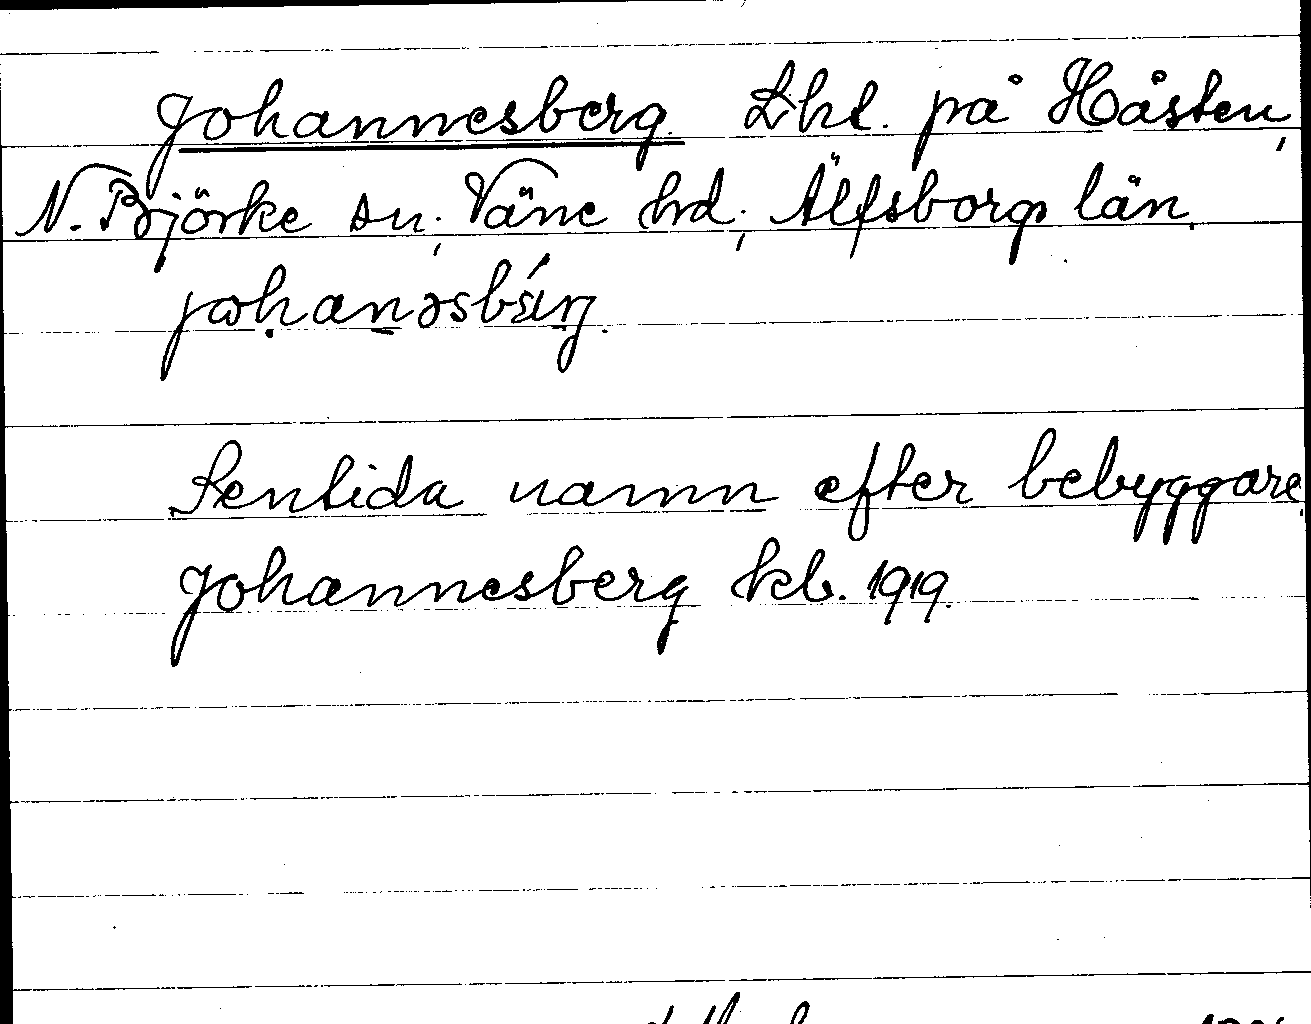 Johannesberg Lht. på Håsten,
N. Björke sn, Väne hd, Älfsborgs län.
Sentida namn efter bebyggare.
Johannesberg kb. 1919.